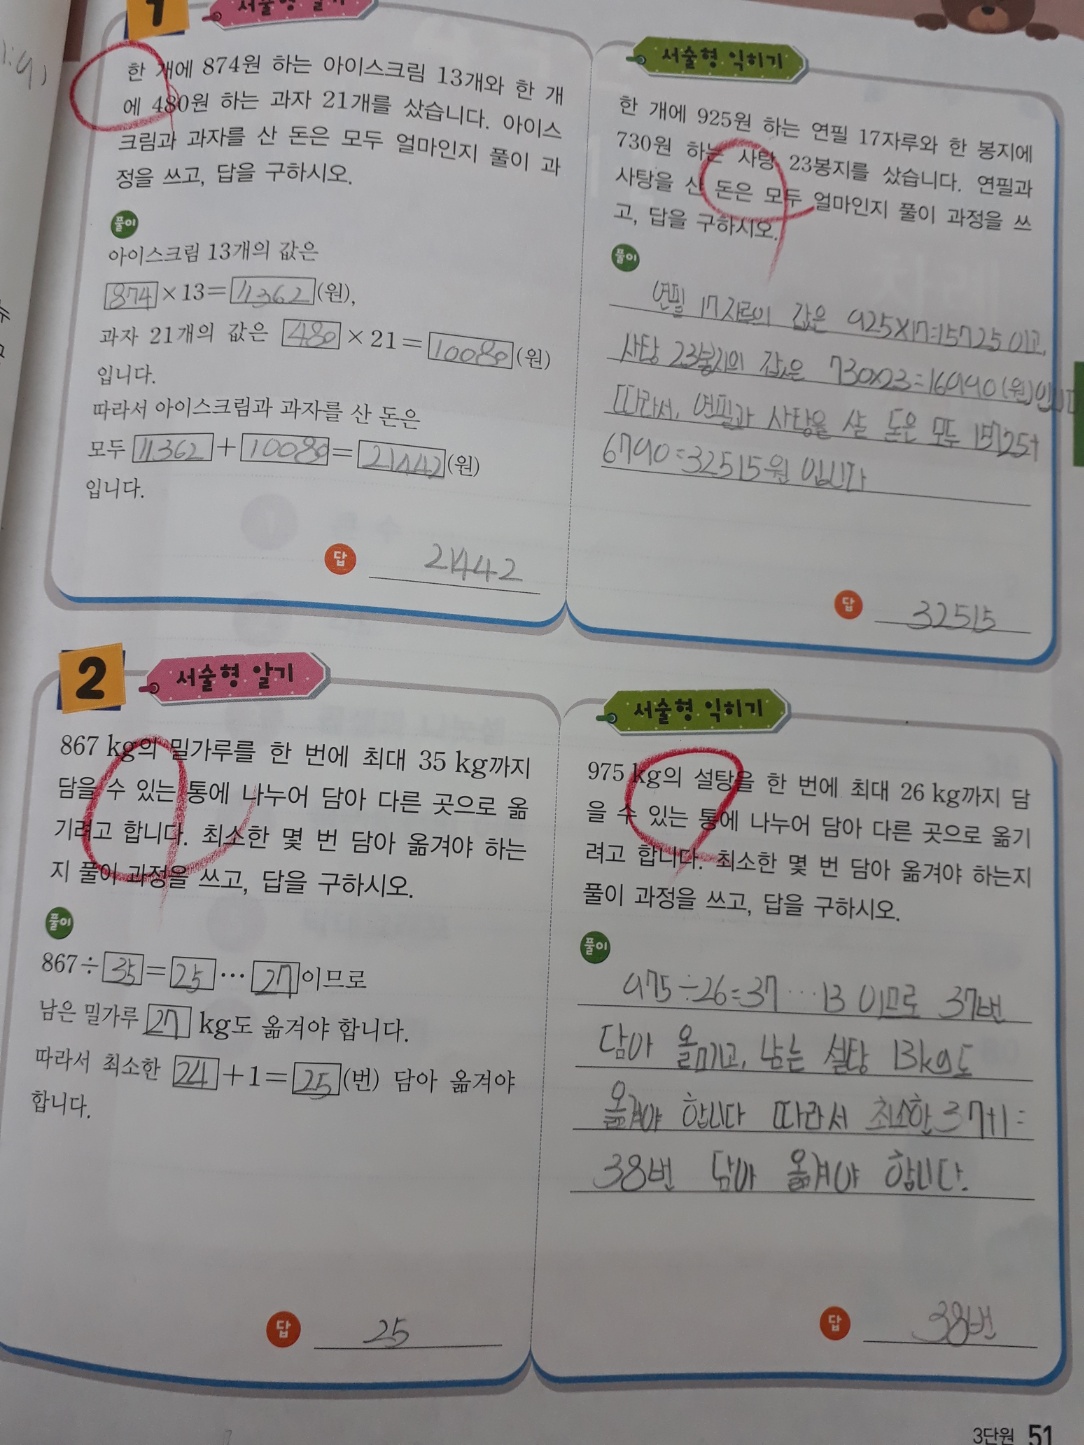 1
서술형 알기
한 개에 874원 하는 아이스크림 13개와 한 개
에 480원 하는 과자 21개를 샀습니다. 아이스
크림과 과자를 산 돈은 모두 얼마인지 풀이 과
정을 쓰고, 답을 구하시오.
풀이
아이스크림 13개의 값은
874 ×13= 11362 (원),
과자 21개의 값은 480 ×21= 10080 (원)
입니다.
따라서 아이스크림과 과자를 산 돈은
모두 11362 + 10080 = 21442 (원)
입니다.
답 21442
서술형 익히기
한 개에 925원 하는 연필 17자루와 한 봉지에
730원 하는 사탕 23봉지를 샀습니다. 연필과
사탕을 산 돈은 모두 얼마인지 풀이 과정을 쓰
고, 답을 구하시오.
풀이
연필 17자루의 값은 925×17=15725이고,
사탕 23봉지의 값은 730×23=16790(원)입니다
따라서, 연필과 사탕을 살 돈은 모두 15725+
6790=32515원 입니다
답 32515
2
서술형 알기
867 kg의 밀가루를 한 번에 최대 35 kg까지
담을 수 있는 통에 나누어 담아 다른 곳으로 옮
기려고 합니다. 최소한 몇 번 담아 옮겨야 하는
지 풀이 과정을 쓰고, 답을 구하시오.
풀이
867÷ 35 = 25 … 27 이므로
남은 밀가루 27 kg도 옮겨야 합니다.
따라서 최소한 24 +1= 25 (번) 담아 옮겨야
합니다.
답 25
서술형 익히기
975 kg의 설탕을 한 번에 최대 26 kg까지 담
을 수 있는 통에 나누어 담아 다른 곳으로 옮기
려고 합니다. 최소한 몇 번 담아 옮겨야 하는지
풀이 과정을 쓰고, 답을 구하시오.
풀이
975÷26=37…13 이므로 37번
담아 옮기고, 남는 설탕 13kg도
옮겨야 합니다 따라서 최소한 37+1=
38번 담아 옮겨야 합니다.
답 38번
3단원 51